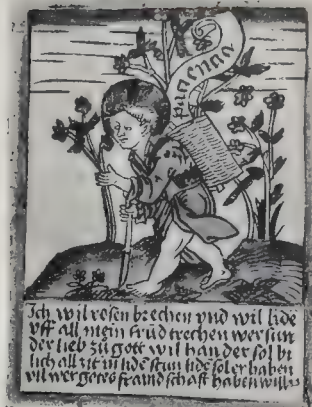 patientia
Ich wil rosen brechen vnd wil lide
vff all mein frūd trechen wer sun
der lieb zů gott wil han der sol bi
lich all zit in lidē stun lidē sol er haben
vil wer gotes fraindschaft haben will